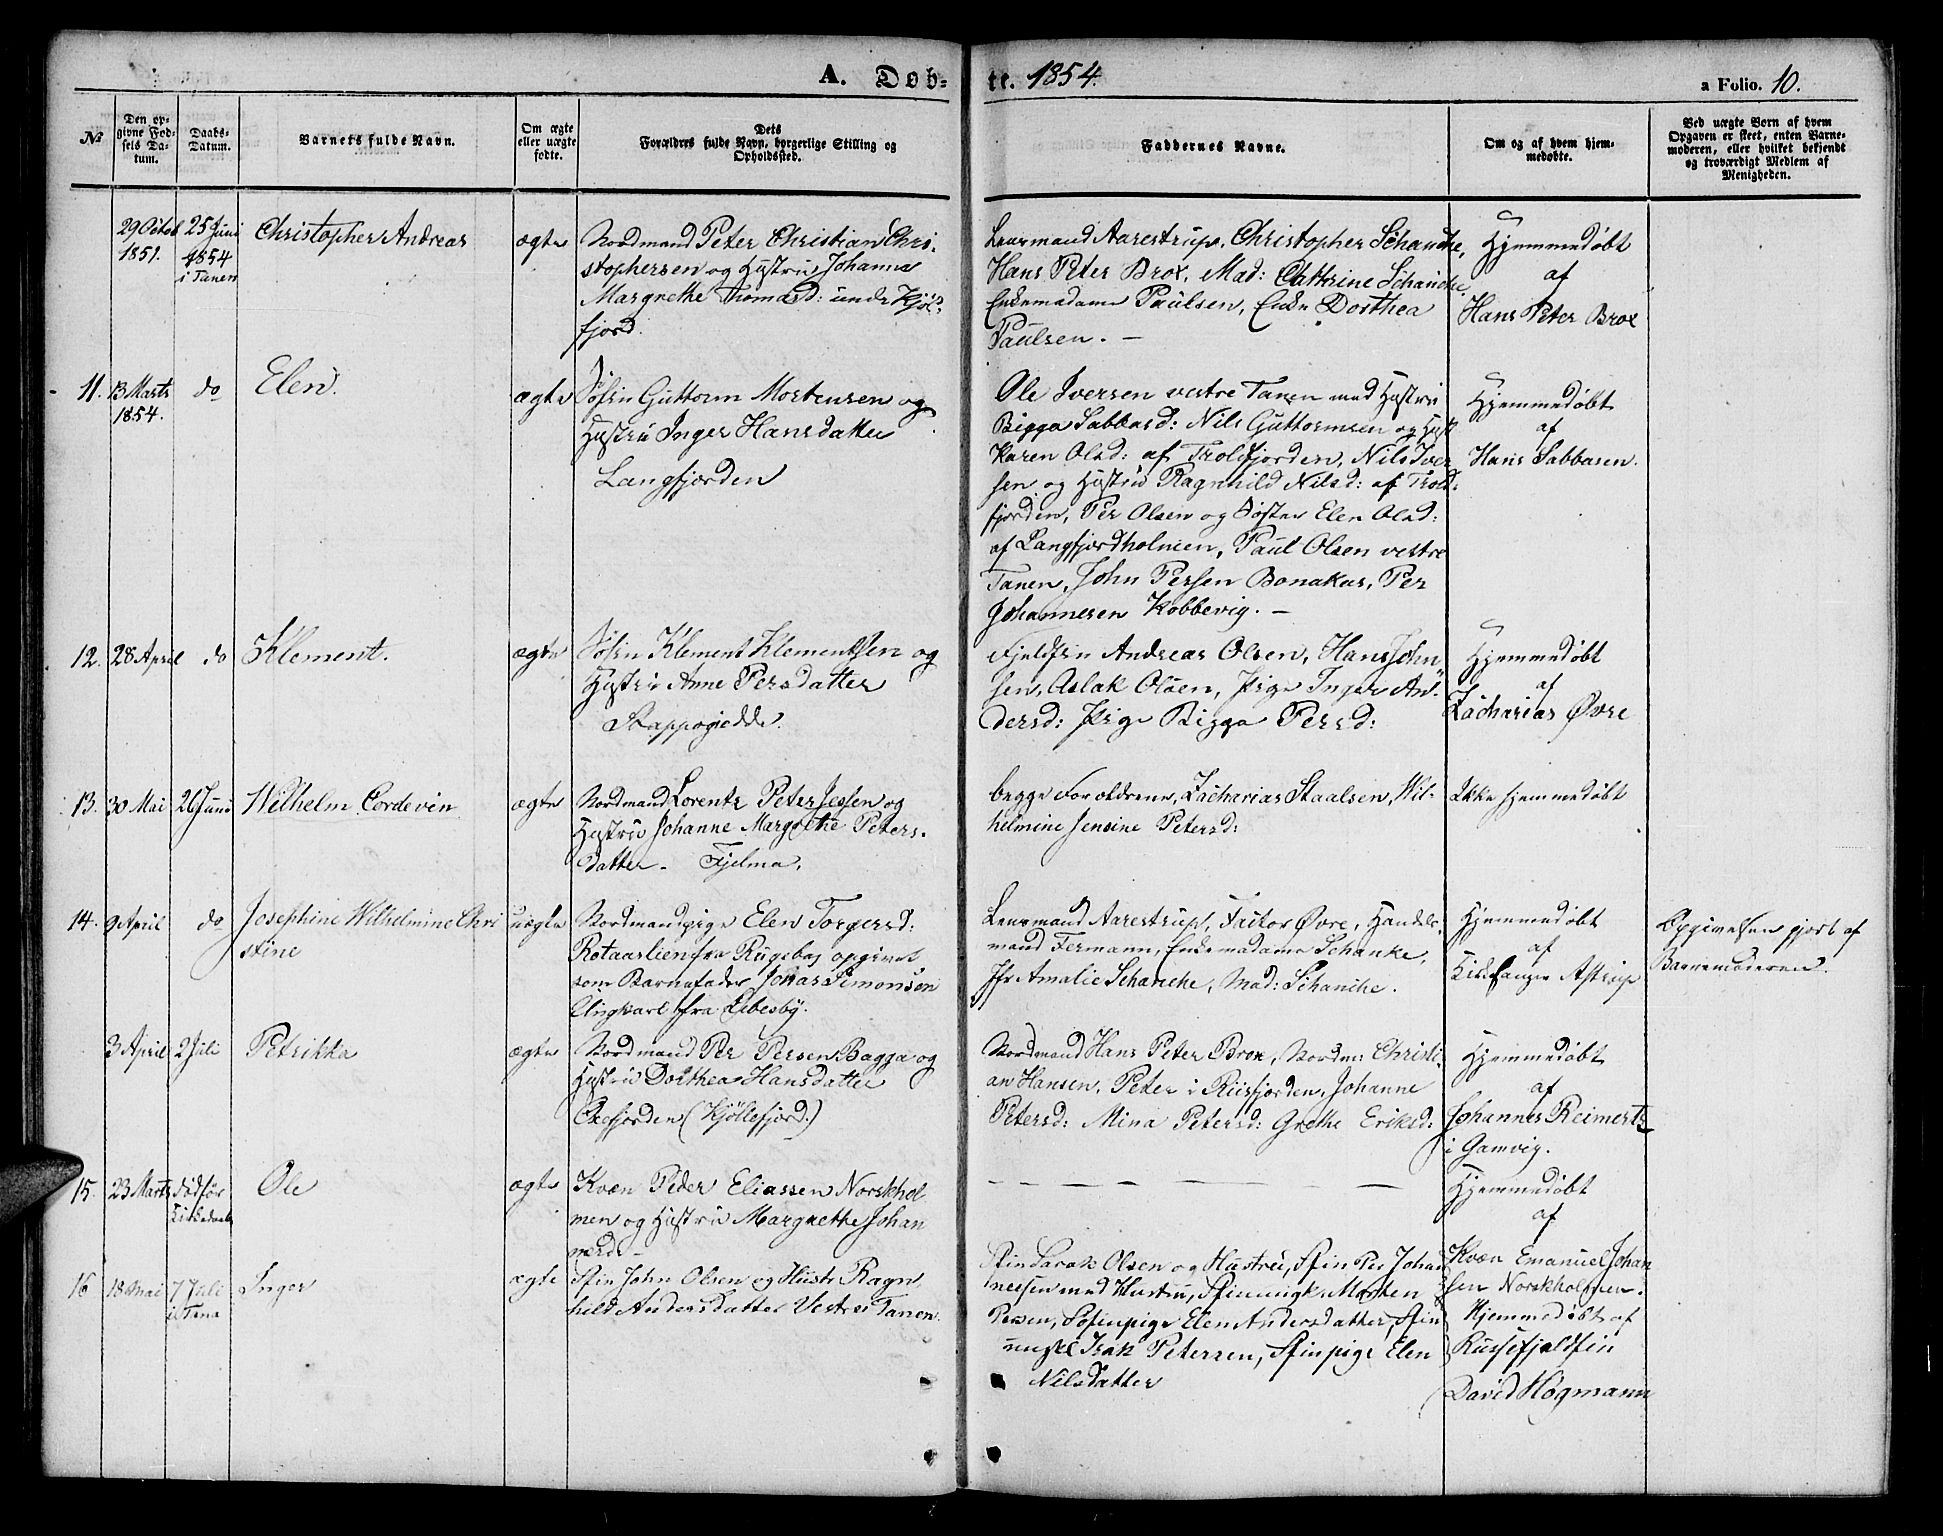 A. Døb-
te. 1854.
a Folio. 10.
No
Den op-
givne Fød-
sels Da-
tum.
Daabs-
Datum.
Barnets fulde Navn.
Om ægte
eller uægte
fødte.
Dets
Forældres fulde Navn, borgerlige Stilling og
Opholdssted.
Faddernes Navne.
Om og af hvem hjem-
medøbte.
Ved uægte Børn af hvem
Opgaven er skeet, enten Barne-
moderen, eller hvilket bekjendt
og troværdigt Medlem af
Menigheden.
29 Octob
1851.
25 Juni
1854
i Tanen
Christopher Andreas
ægte
Nordmand Peter Christian Chri-
stophersen og Hustru Johanna
Margrethe Thomasd:
fjord.
Lensmand Aarestrup, Christopher Schanche,
Hans Peter Brox, Mad: Cathrine Schanche
Enkemadame Paulsen, Enke Dorthea
Paulsen. —
Hjemmedøbt
af
Hans Peter Brox
11.
13 Marts
1854.
do
Elen.
ægte
Søfin Guttorm Mortensen og
Hustru Inger Hansdatter
Langfjorden
Ole Iversen vestre Tanen med Hustru
Bigga Sabbasd: Nils Guttormsen og Hust
Karen Olsd: af Troldfjorden, Nils Iver
sen og Hustru Ragnhild Nilsd: af Trold-
fjorden, Per Olsen og Søster Elen Olsd:
af Langfjordholmen, Paul Olsen vestre
Tanen, John Persen Bonakas, Per
Johannesen Kobbevig. —
Hjemmedøbt
af
Hans Sabbasen.
12.
28 April
do
Klement.
ægte
Søfin Klement Klementsen og
Hustru Anne Persdatter
Stappogiedde.
Fjeldfin Andreas Olsen, Hans John
sen, Aslak Olsen, Pige Inger An-
dersd: Pige Bigga Persd:
Hjemmedøbt
af
Zacharias Øvre
13.
30 Mai
26 Juni
Wilhelm Cordevin
ægte
Nordmand Lorentz Peter Jessen og
Hustru Johanne Margrethe Peters-
datter. Fjelma.
begge Forældrene, Zacharias Staalsen, Wil-
helmine Jensine Petersd:
Ikke hjemmedøbt
14.
9 April
do
Josephine Wilhelmine Chri
stine
uægte
Nordmandspige Elen Torgersd:
Rotaarlien fra opgivet
som Barnefader Johas Simonsen
Ungkarl fra Lebesby.
Lensmand Aarestrup, Factor Øvre, Handels-
mand Fermann, Enkemadame Schanke,
Jfr Amalie Schanche, Mad: Schanche.
Hjemmedøbt
af
Kirkesanger Astrup
Opgivelsen gjort af
Barnemoderen.
3 April
2 Juli
Petrikka
ægte
Nordmand Per Persen Bagga og
Hustru Dorthea Hansdatter
Oxefjorden (Kjöllefjord.)
Nordmand Hans Peter Brox, Nordm: Christi-
an Hansen, Peter i Riisfjorden, Johanne
Petersd: Mina Petersd: Grethe Eriksd:
Hjemmedøbt
af
Johannes Reimertz
i Gamvig.
15.
23 Marts
død før
Kirkedaab
Ole
ægte
Kvæn Peder Eliassen Norskhol
men og Hustru Margrethe Johan
nesd. —
— — — — —
Hjemmedøbt
af
Kvæn Emanuel Johan
sen Norskholmen.
16
18 Mai
7 Juli
i Tana
Inger
ægte
Sfin John Olsen og Hustr Ragn
hild Andersdatter Vestre Tanen.
Sfin Olsen og Hustru, Sfin Per Johan
nessen med Hustru, Sfinnungk Morten
Persen, Søfinpige Elen Andersdatter, Sfin
ungkl Isak Petersen, Sfinpige Elen
Nilsdatter
Hjemmedøbt af
Russefjeldfin
David Högmann